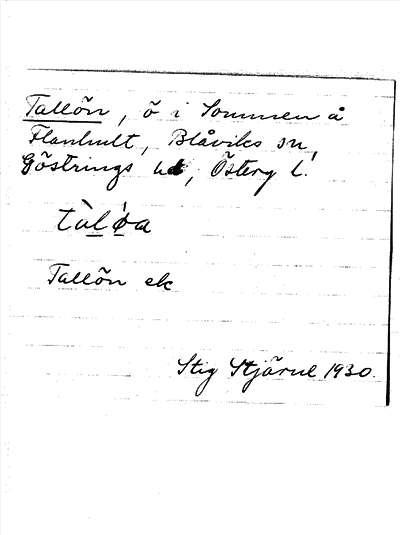 Tallön, ö i Sommen å
Flanhult, Blåviks sn,
Göstrings hd, Österg l.
tàl̲ø̀a
Tallön ek
Stig Stjärnl 1930.